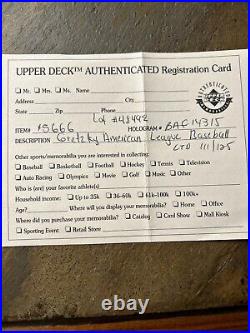 UPPER DECK™ AUTHENTICATED Registration Card
☐ Mr. ☐ Mrs. ☐ Ms. Name
Address
City
State Zip Phone
Lot #48442
ITEM# 15666 HOLOGRAM# BAC14315
DESCRIPTION Gretzky American League Baseball
LTD 111/125
Other sports/memorabilia you are interested in collecting:
☐ Baseball ☐ Basketball ☐ Football ☐ Hockey ☐ Tennis ☐ Television
☐ Auto Racing ☐ Olympics ☐ Movie ☐ Golf ☐ Music ☐ Other
Who is (are) your favorite athlete(s)
Household income: ☐ Up to 35k ☐ 36-60k ☐ 61k-100k ☐ 100k+
Age? Where will you display your memorabilia? ☐ Home ☐ Office
Where did you purchase your memorabilia? ☐ Catalog ☐ Card Show ☐ Mall Kiosk
☐ Sporting Event ☐ Retail Store